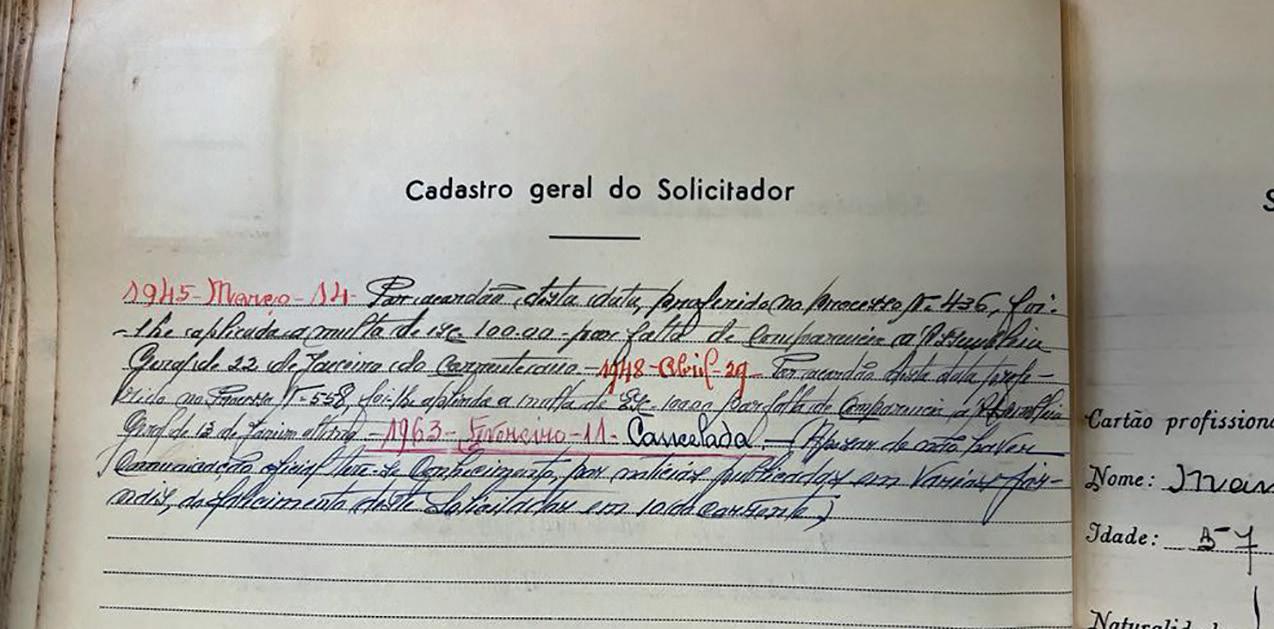 Cadastro geral do Solicitador
1945-Março-14- Por acordão desta data, proferido no processo Nº 436, foi-
-lhe aplicada a multa de esc 100.00-por falta de Comparencia á Assembleia
Geral de 22 de Janeiro do Corrente ano-1948-Abril-29- Por acordão desta data profe-
rido no Processo Nº-558, foi-lhe aplicada a multa de Esc-100.00 por falta de Comparencia á Assembleia
Geral de 13 de Janeiro ultimo.-1963-Fevereiro-11-Cancelada.-(Apesar de não haver
Comunicação oficial teve-se Conhecimento, por noticias publicadas em Varios jor-
nais, do falecimento deste Solicitador em 10 do Corrente.)
S
Cartão profission
Nome:
Idade: 57
Naturalid